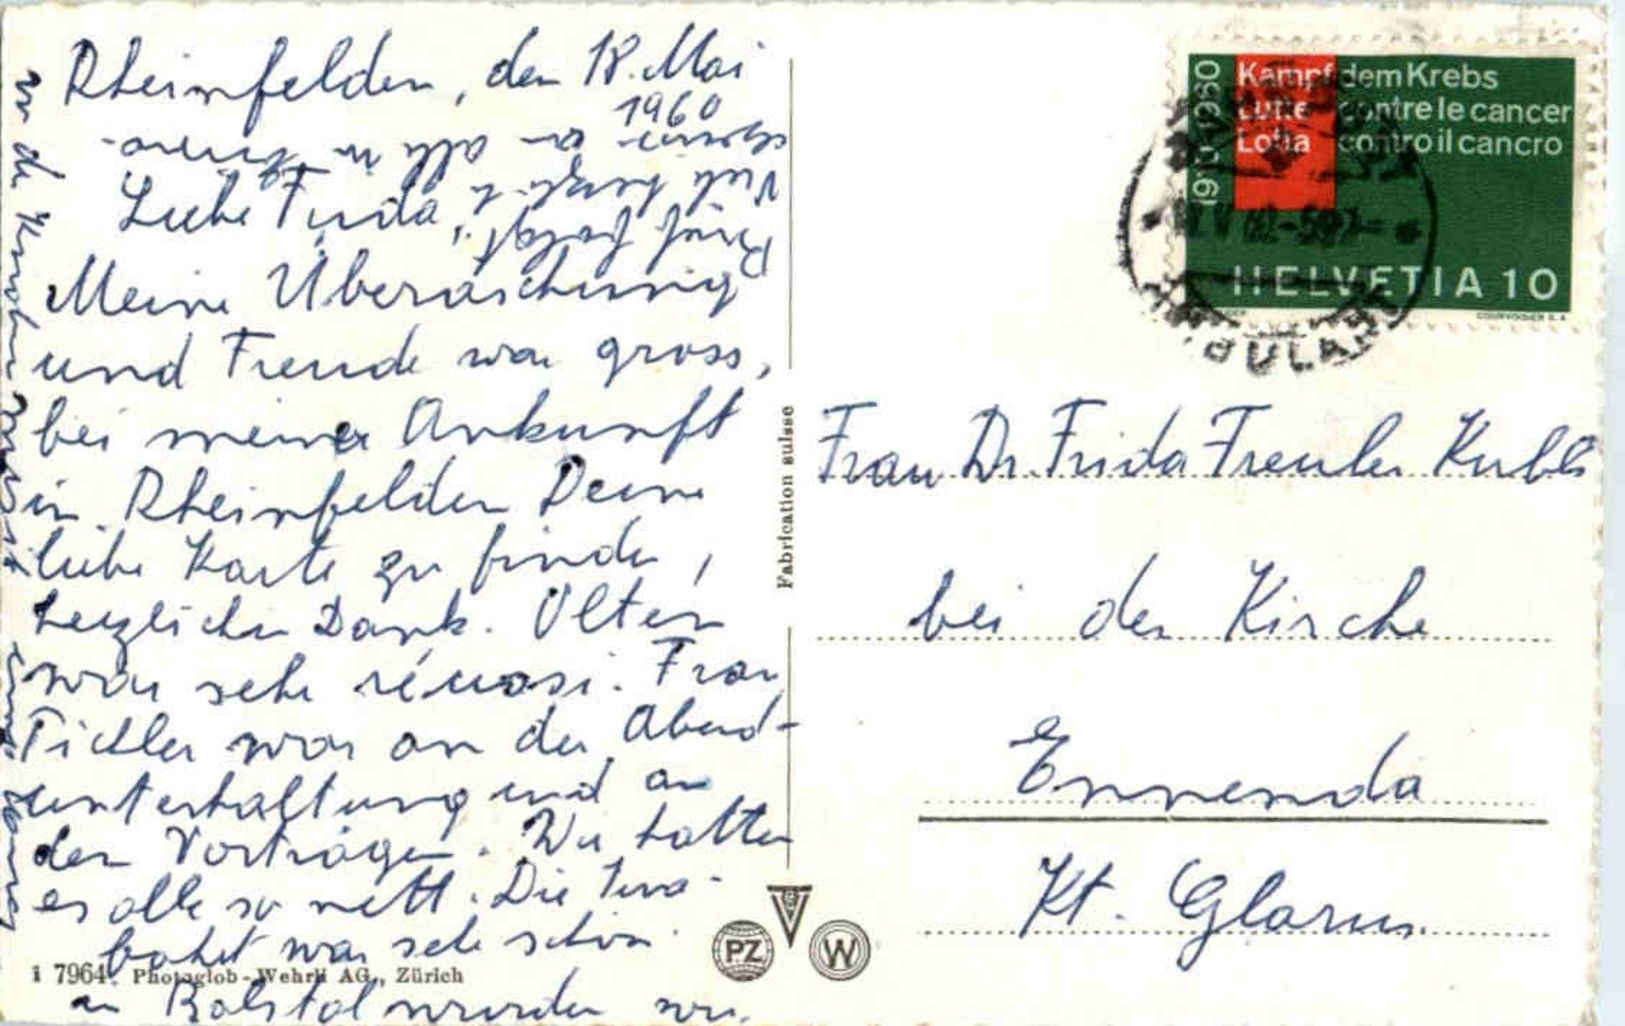 Rheinfelden, den 18. Mai
1960
Liebe Frida,
Meine Überaschung
und Freude war gross,
bei meiner Ankunft
in Rheinfelden Deine
liebe Karte zu finden,
herzlichen Dank. Olten
war sehr réussi. Frau
war an der Abend-
unterhaltung und an
den Vorträgen. Wir hatten
es alle so nett. Die
fahrt war sehr schön.
in Balstal wurden wir
Kampf dem Krebs
Lutte contre le cancer
Lotta contro il cancro
1910 1960
HELVETIA 10
COURVOISIER S.A.
AMBULANT
Fabrication suisse
Frau Dr. Frida Freuler Kubli
bei der Kirche
Ennenda
Kt. Glarus.
PZ
W
i 7964 Photoglob-Wehrli AG., Zürich